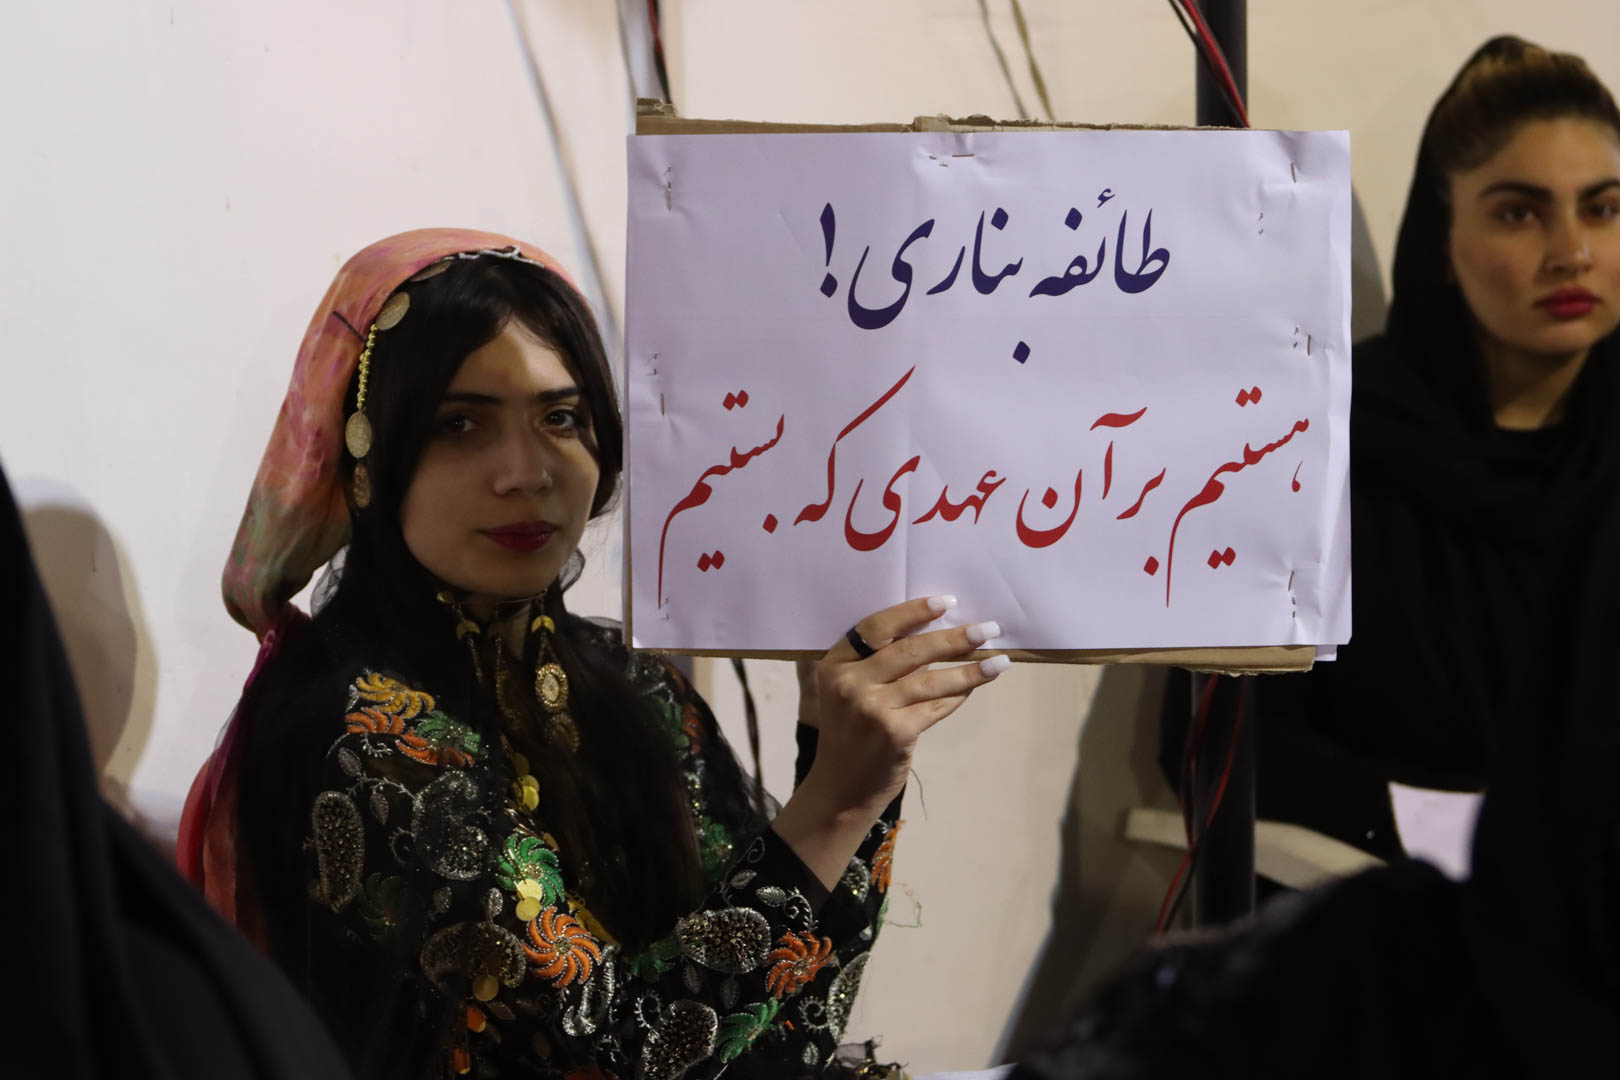 طائفه بناری!
هستیم بر آن عهدی که بستیم